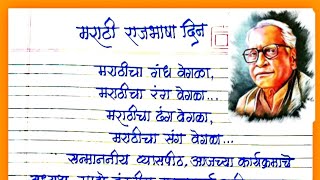 मराठी राजभाषा दिन
मराठीचा गंध वेगळा,
मराठीचा रंग वेगळा...
मराठीचा ढंग वेगळा,
मराठीचा संग वेगळा...
सन्माननीय व्यासपीठ, आजच्या कार्यक्रमाचे